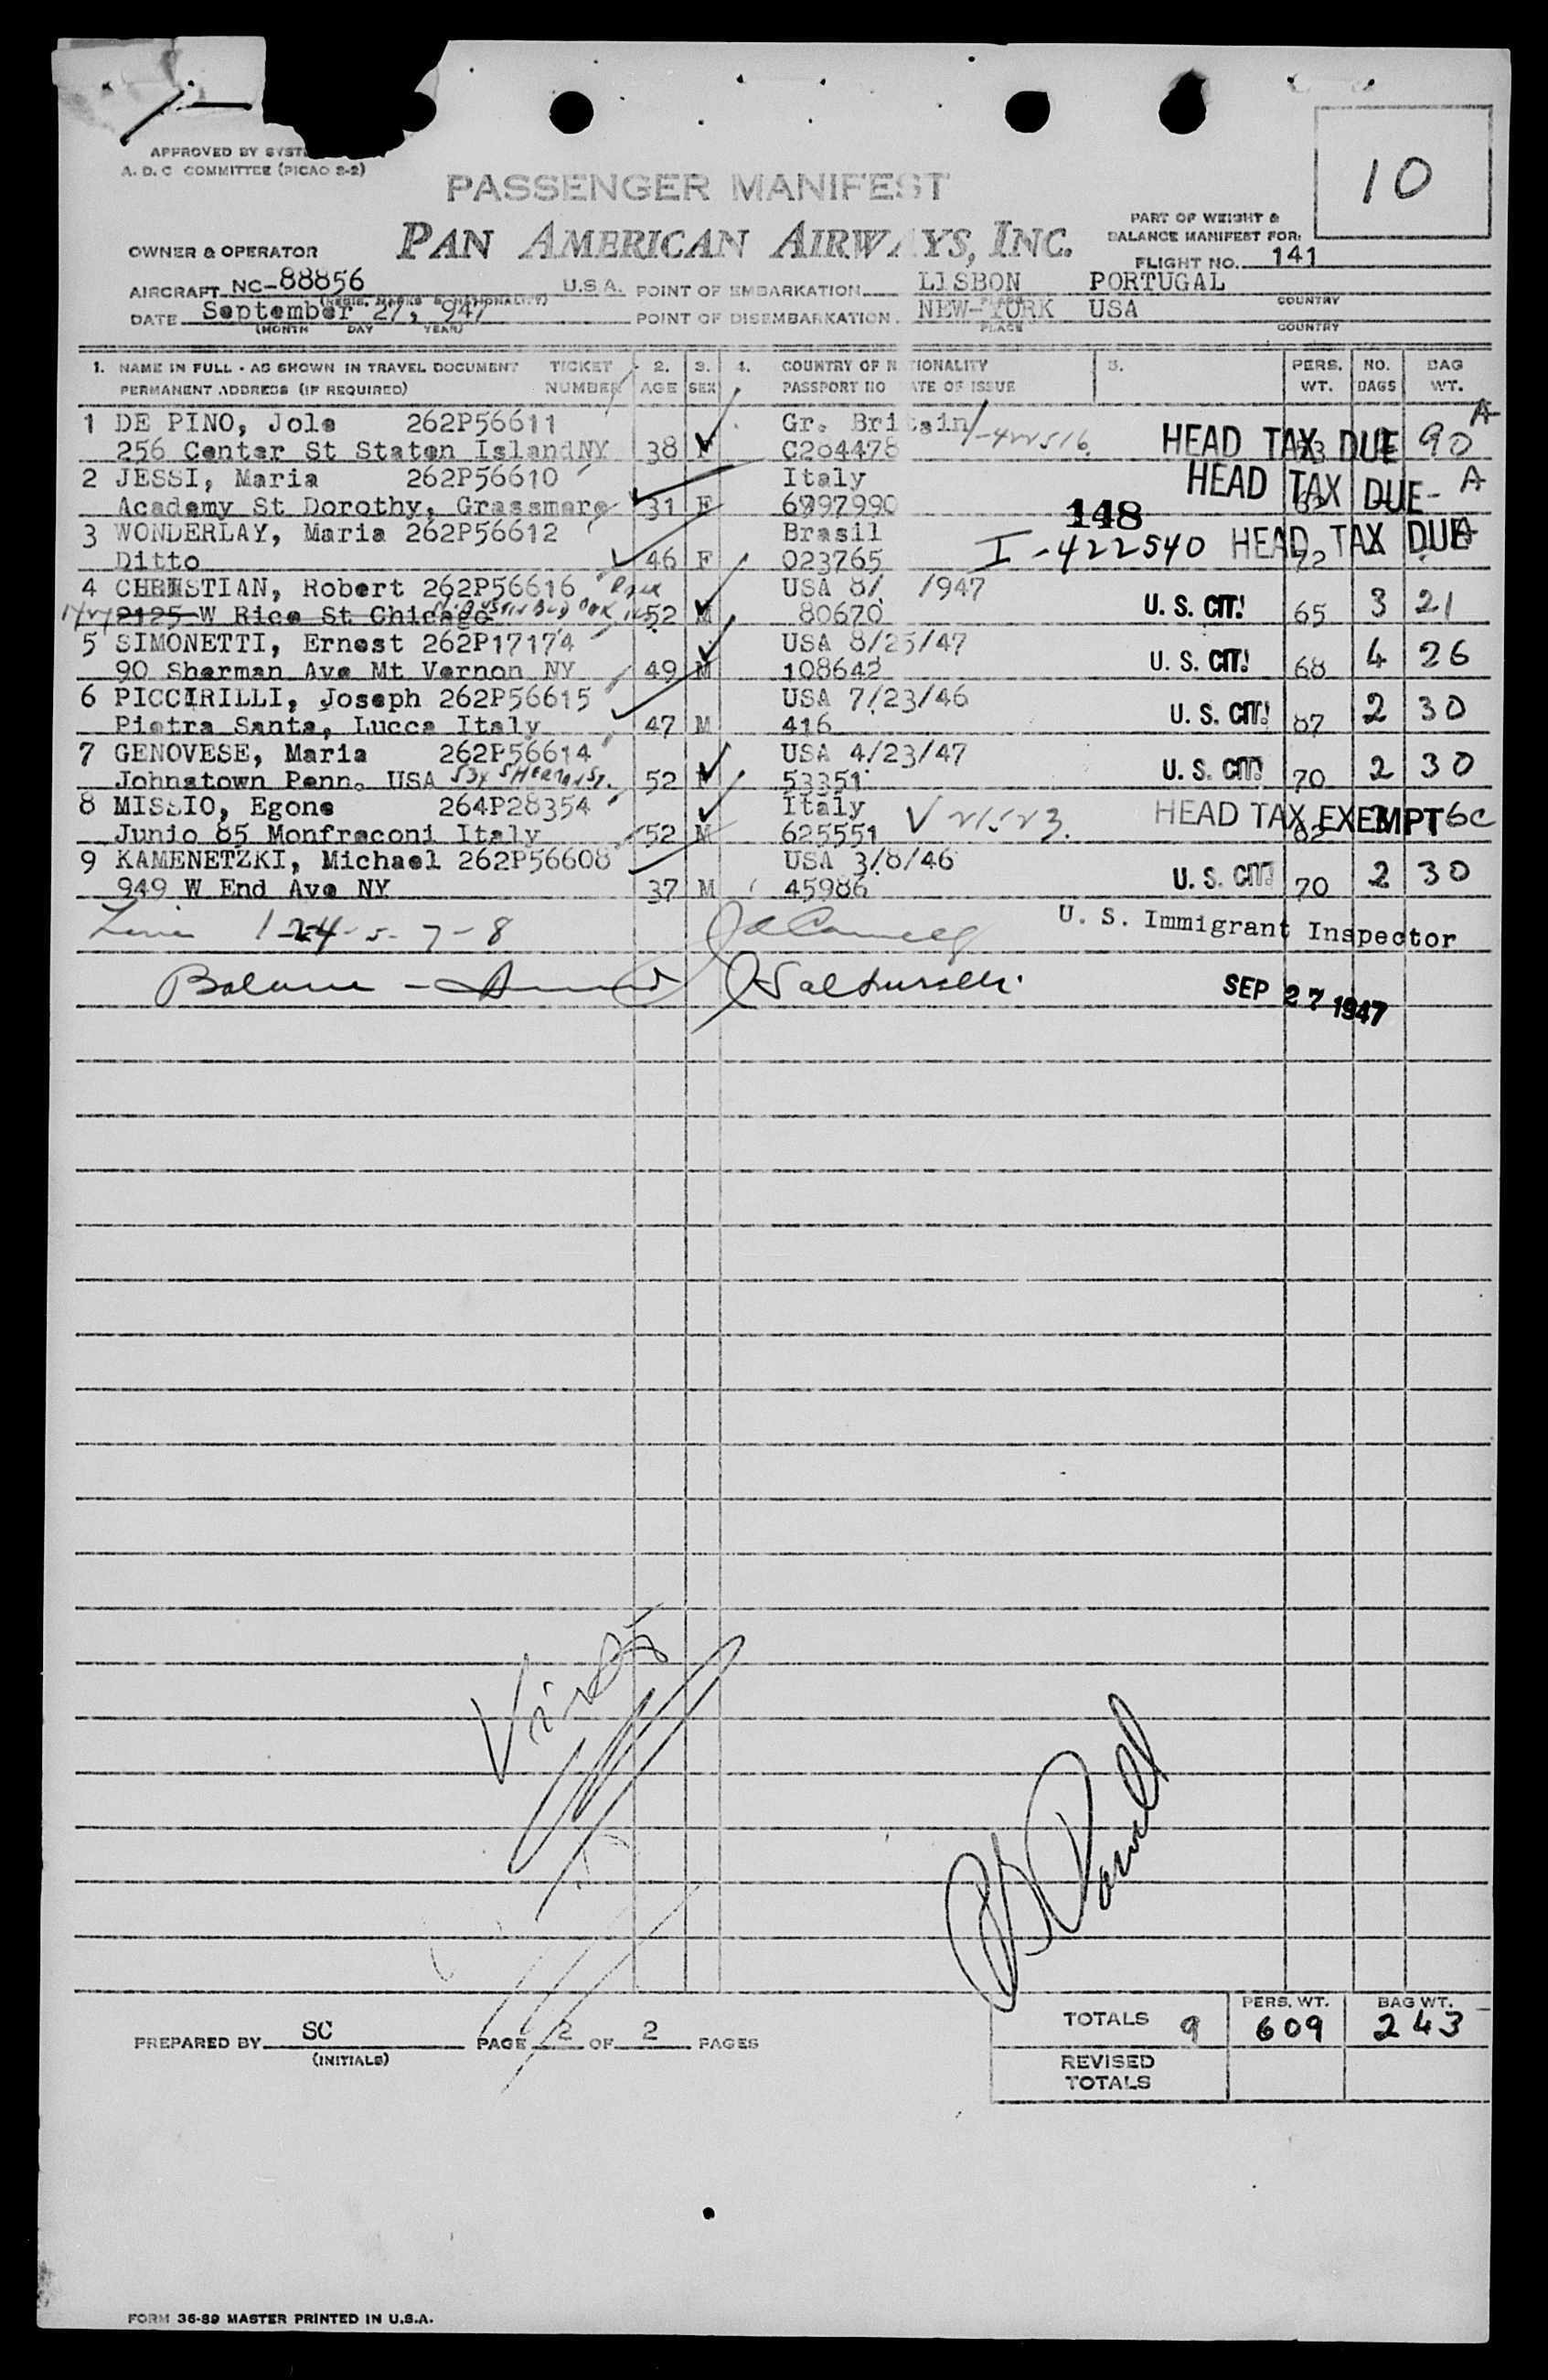 APPROVED BY SYST
A. D. C COMMITTEE (PICAO S-2)
10
PASSENGER MANIFEST
PAN AMERICAN AIRWAYS, INC.
PART OF WEIGHT &
BALANCE MANIFEST FOR:
FLIGHT NO. 141
OWNER & OPERATOR
AIRCRAFT NC-88856 U.S.A. POINT OF EMBARKATION LISBON PORTUGAL
(REGIS. MARKS & NATIONALITY) PLACE COUNTRY
DATE September 27, 947 POINT OF DISEMBARKATION NEW-YORK USA
(MONTH DAY YEAR) PLACE COUNTRY
1. NAME IN FULL - AS SHOWN IN TRAVEL DOCUMENT TICKET 2. 3. 4. COUNTRY OF N TIONALITY 5. PERS. NO. BAG
PERMANENT ADDRESS (IF REQUIRED) NUMBER AGE SEX PASSPORT NO ATE OF ISSUE WT. BAGS WT.
1 DE PINO, Jole 262P56611 Gr. Britain A
256 Center St Staten IslandNY 38 F C264478 HEAD TAX DUE 90
2 JESSI, Maria 262P56610 Italy HEAD TAX DUE- A
Academy St Dorothy, Grassmere 31 F 6997990 148
3 WONDERLAY, Maria 262P56612 Brasil I-422540 HEAD TAX DUE A
Ditto 46 F 023765 72
4 CHRISTIAN, Robert 262P56616 USA 8/ /1947
2125 W Rice St Chicago 52 M 80670 U. S. CIT. 65 3 21
5 SIMONETTI, Ernest 262P17174 USA 8/25/47
90 Sherman Ave Mt Vernon NY 49 M 108642 U. S. CIT. 68 4 26
6 PICCIRILLI, Joseph 262P56615 USA 7/23/46
Pietra Santa, Lucca Italy 47 M 416 U. S. CIT. 87 2 30
7 GENOVESE, Maria 262P56614 USA 4/23/47
Johnstown Penn. USA 52 F 53351 U. S. CIT. 70 2 30
8 MISSIO, Egone 264P28354 Italy HEAD TAX EXEMPT 6C
Junio 85 Monfraconi Italy 52 M 625551 62
9 KAMENETZKI, Michael 262P56608 USA 3/8/46
949 W End Ave NY 37 M 45986 U. S. CIT. 70 2 30
U. S. Immigrant Inspector
SEP 27 1947
TOTALS 9 PERS. WT. 609 BAG WT. 243
PREPARED BY SC PAGE 2 OF 2 PAGES
(INITIALS)
REVISED
TOTALS
FORM 36-89 MASTER PRINTED IN U.S.A.